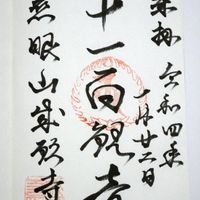 奉拝 令和四年
一月廿二日
十一面観音
慈眼山成願寺